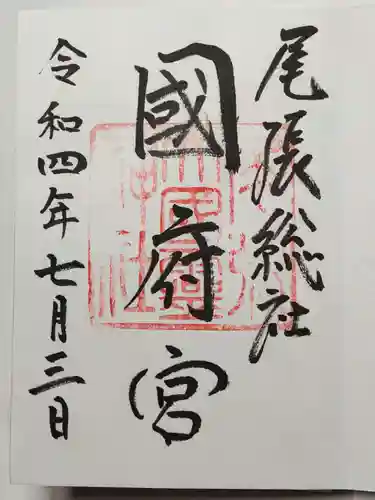 尾張総社
國府宮
令和四年七月三日